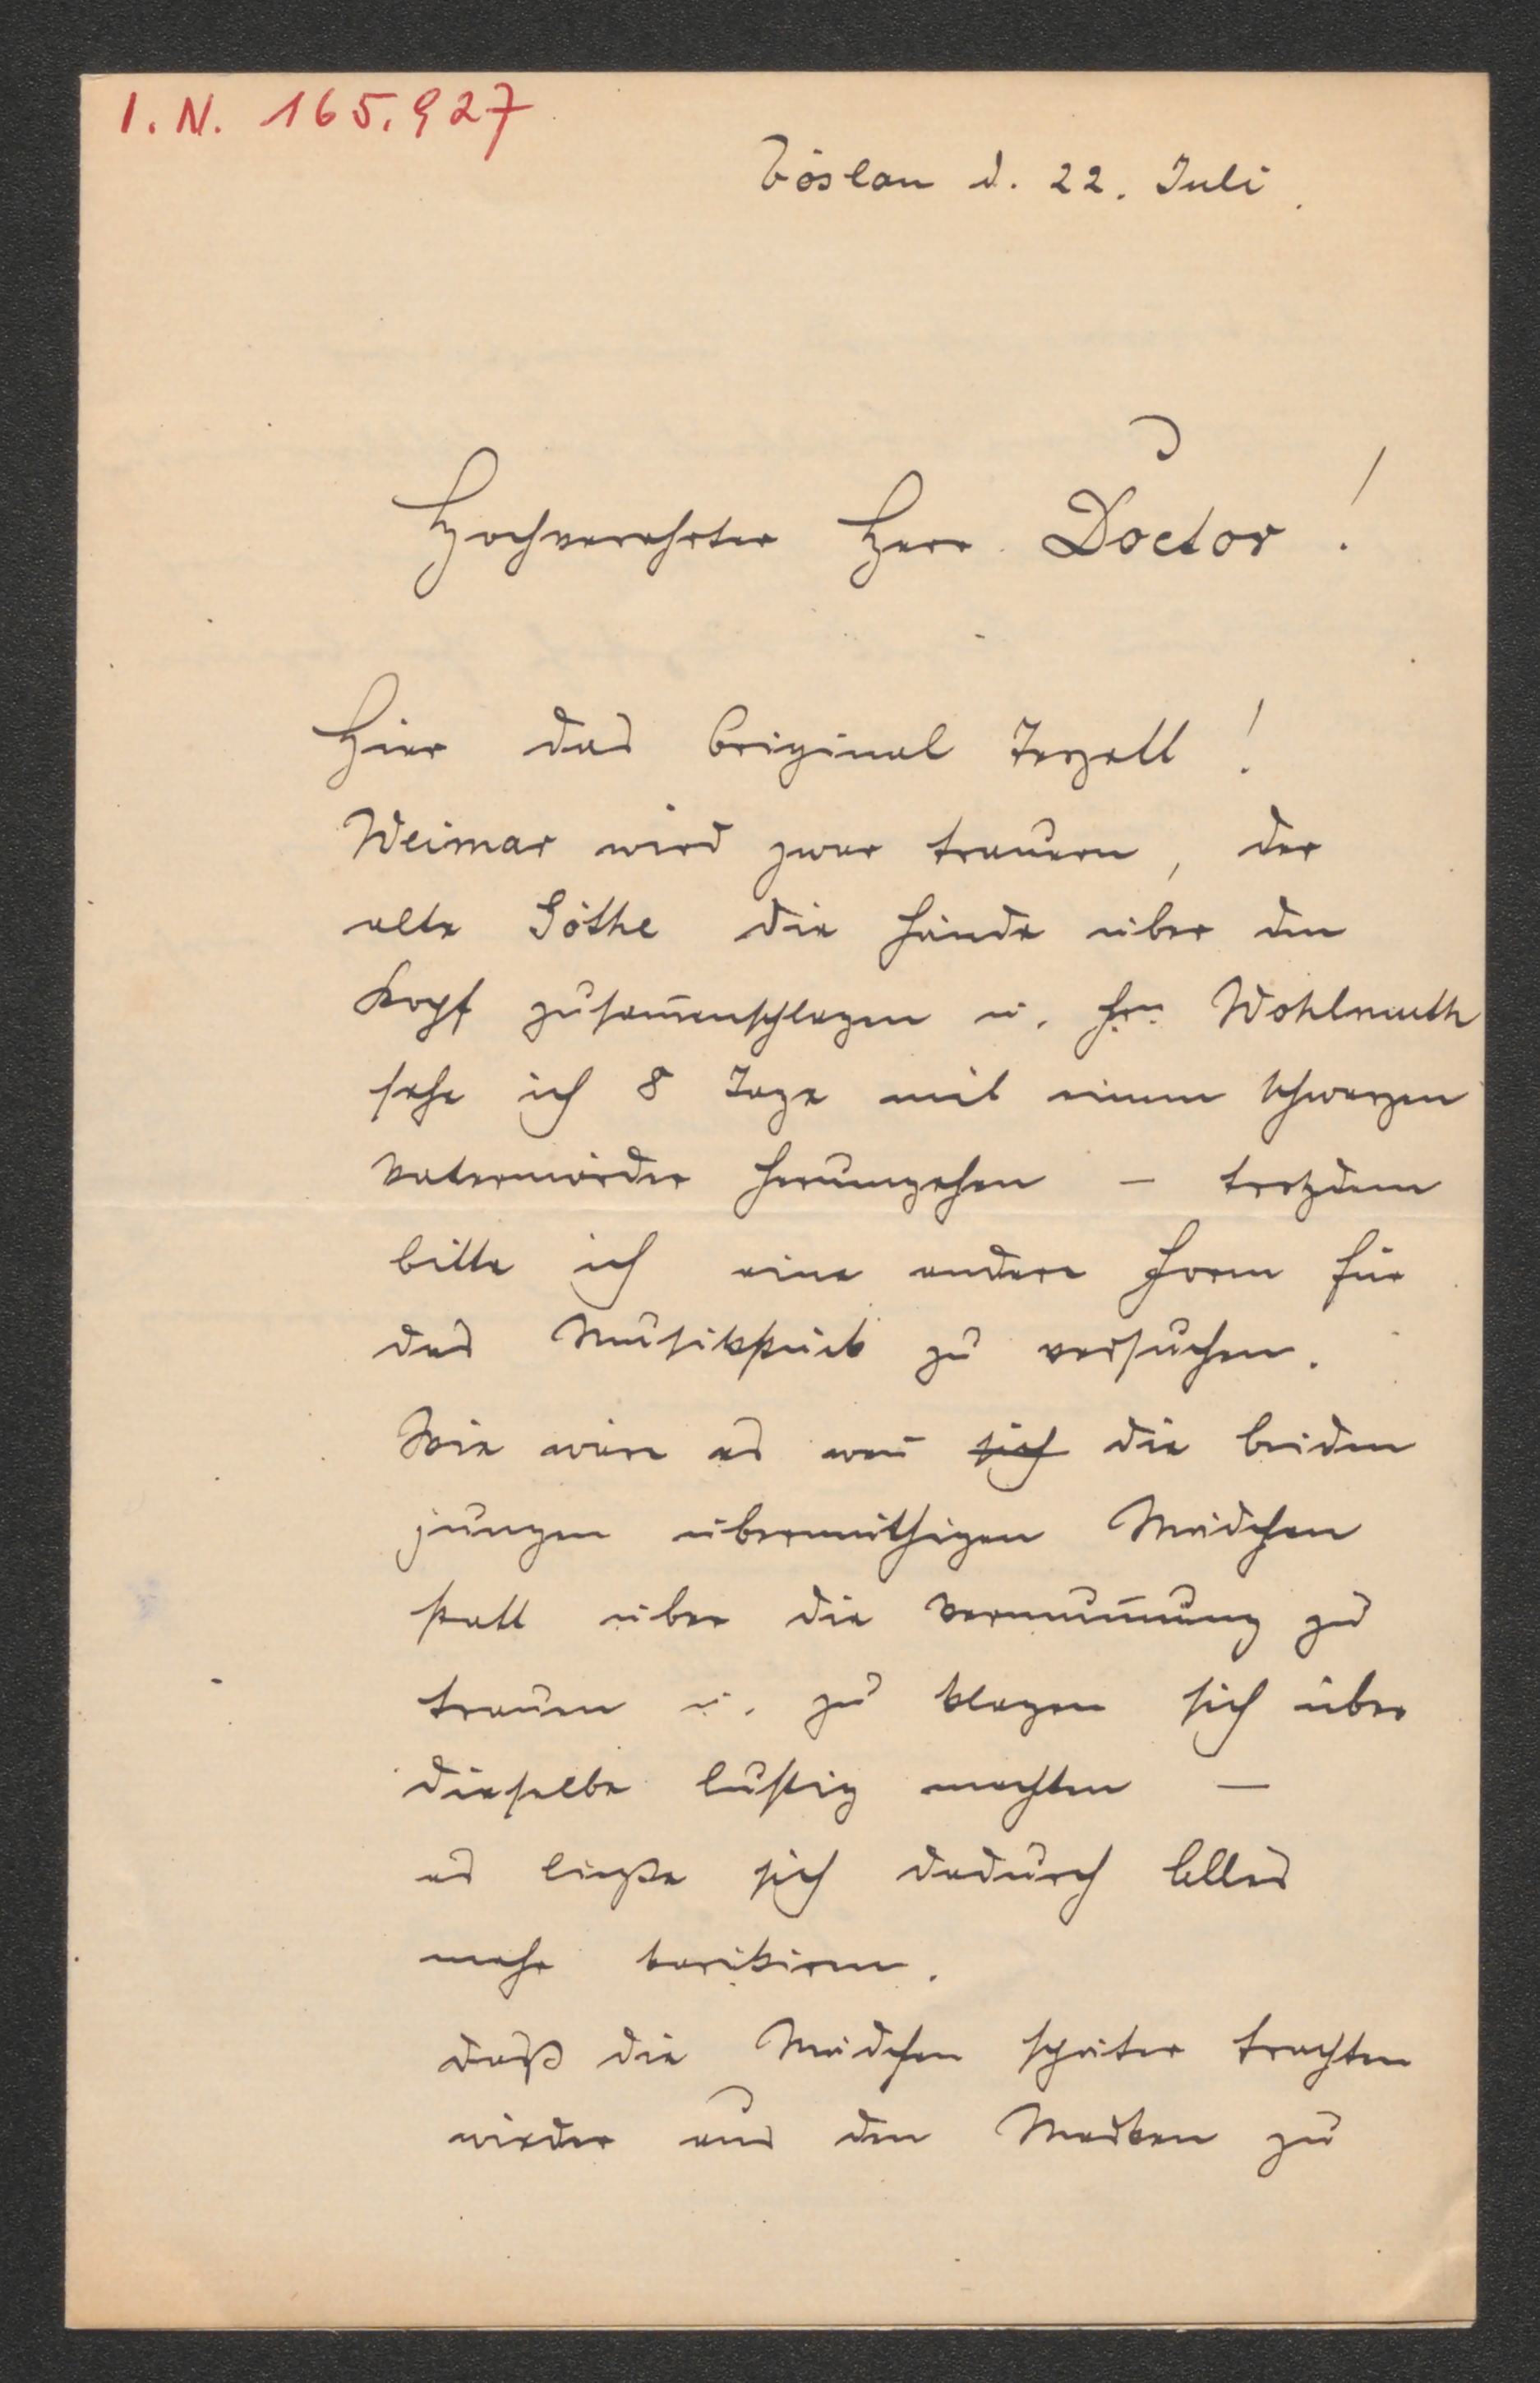 I. N. 165.927
Vöslau d. 22. Juli.
Hochverehrter Herr Doctor!
Hier das Original Terzett!
Weimar wird zwar trauern, der
alte Göthe die Hände über den
Kopf zusam̅enschlagen u. Hrn Wohlmuth
sehe ich 8 Tage mit einem schwarzen
Vatermörder herumgehen – trotzdem
bitte ich eine andere Form für
das Musikstück zu versuchen.
Wie wäre es wen̅ sich die beiden
jungen übermüthigen Mädchen
statt über die Vermum̅ung zu
trauern u. zu klagen sich über
dieselbe lustig machten –
es ließe sich dadurch Alles
mehr karikiren.
daß die Mädchen später trachten
wieder aus den Masken zu